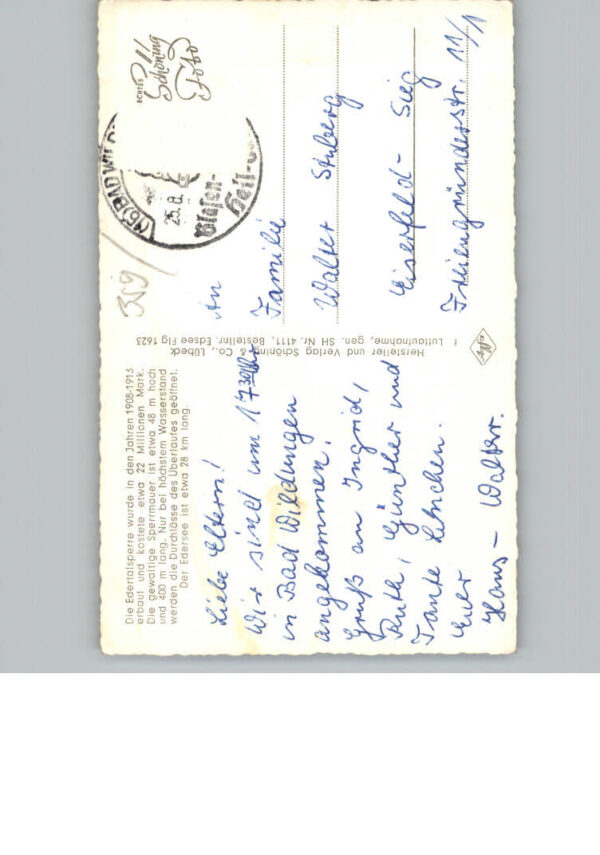 Die Edertalsperre wurde in den Jahren 1908-1915
erbaut und kostete etwa 22 Millionen Mark.
Die gewaltige Sperrmauer ist etwa 48 m hoch
und 400 m lang. Nur bei höchstem Wasserstand
werden die Durchlässe des Überlaufes geöffnet.
Der Edersee ist etwa 28 km lang.
Liebe Eltern!
Wir sind um 17³⁰ Uhr
in Bad Wildungen
angekommen.
Gruß an Ingrid,
Ruth, Günther und
Tante Lenchen.
Euer
Hans - Walter.
Hersteller und Verlag Schöning & Co., Lübeck
Luftaufnahme, gen. SH Nr. 4111, Bestellnr. Edsee Flg 1623
ECHTES
Schöning
Foto
(16) BAD WILD
25.8.
Blasen-
Heil-
359
An
Familie
Walter Stuberg
Eiserfeld - Sieg
Freiengründerstr. 11/1